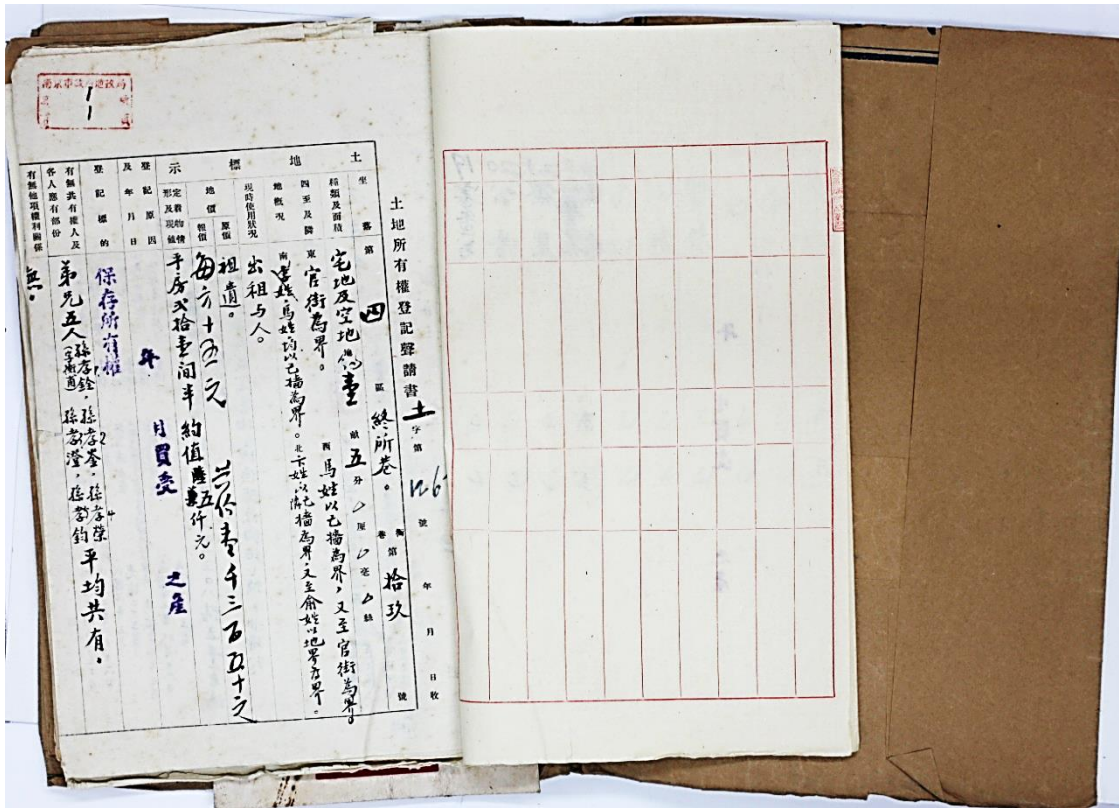 土地所有權登記聲請書 土字第 號 年 月 日收
土地標示
坐落 第四區 終所巷。 街巷第拾玖號
種類及面積 宅地及空地 約壹畝五分0厘0毫0絲
四至及隣地概况 東 官街為界。 西 馬姓以己墻為界,又至官街為界。
南 馬姓均以己墻為界。北 卞姓以己墻為界,又至俞姓以地界為界。
現時使用狀况 出租与人。
地價 原價 祖遺。
報價 每方十五元 共合壹千三百五十元
定着物情形及現值 平房弍拾壹間半 約值五仟元。
登記原因及年月日 年 月買受 之產
登記標的 保存所有權
有無共有權人及各人應有部份 弟兄五人 孫孝銓,孫孝崟,孫孝榮
孫孝澄,孫孝鈞 平均共有。
有無他項權利關係 無。